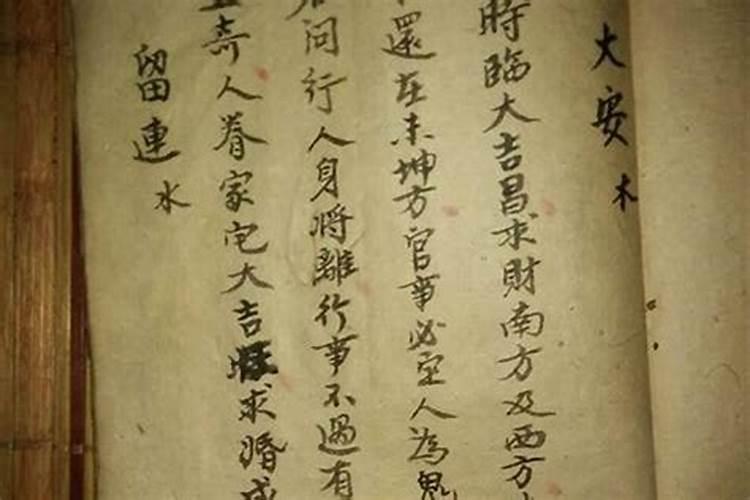 大安 木
時臨大吉昌求財南方及西方
還在未坤方官事必宜人為鬼
問行人身將離行事不過有
奇人眷家宅大吉旺求婚成
留連 水